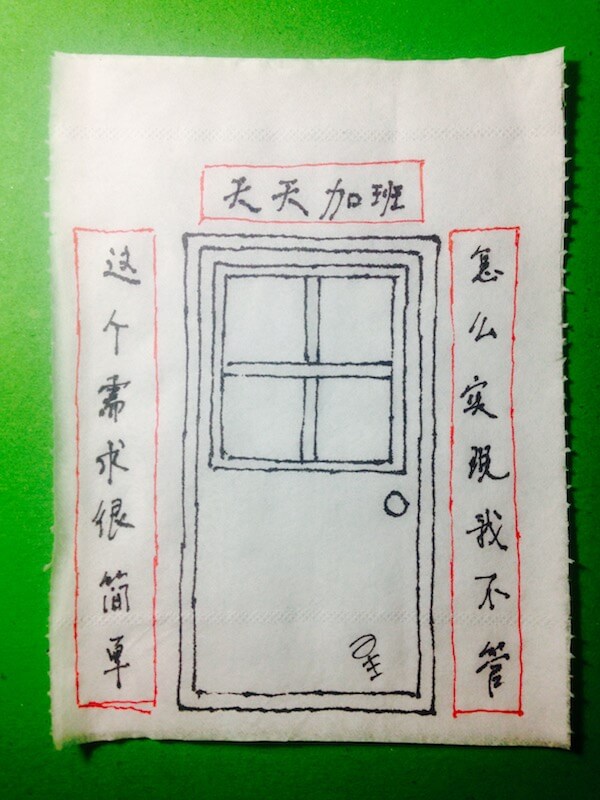 天天加班
这个需求很简单
怎么实现我不管